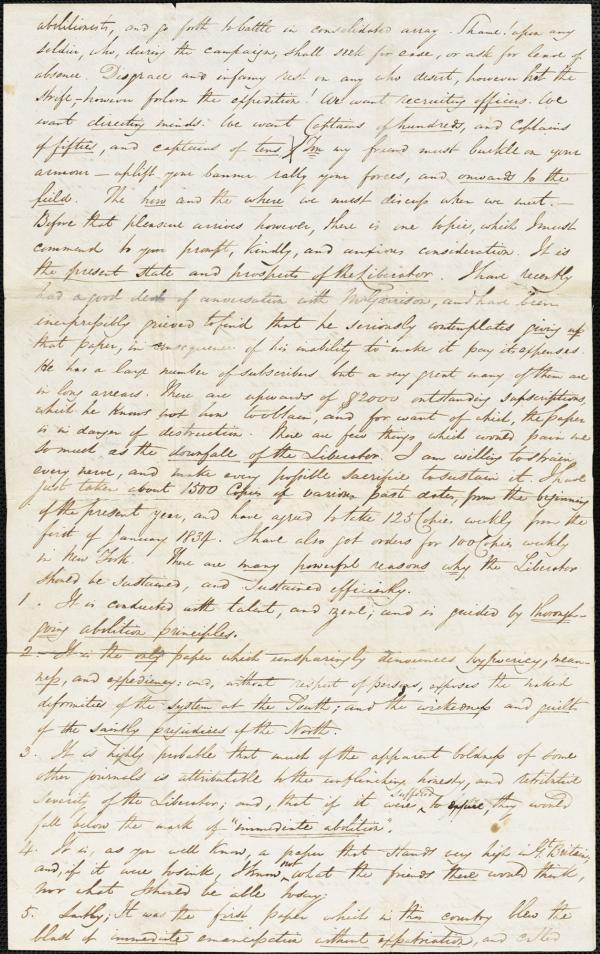 abolitionists, and go forth to battle in consolidated array. Shame! upon any
soldier, who, during the campaign, shall seek for ease, or ask for leave of
absence. Disgrace and infamy rest on any who desert, however hot the
strife – however forlorn the expedition! We want recruiting officers. We
want directing minds. We want Captains of hundreds, and Captains
of fifties, and captains of tens. You my friend must buckle on your
armour – uplift your banner rally your forces, and onwards to the
field. The how and the where we must discuss when we meet. –
Before that pleasure arrives however, there is one topic, which I must
commend to your prompt, kindly, and anxious consideration. It is
the present state and prospects of the Liberator. I have recently
had a good deal of conversation with Mr Garrison, and have been
inexpressibly grieved to find that he seriously contemplates giving up
that paper, in consequence of his inability to make it pay its expenses.
He has a large number of subscribers but a very great many of them are
in long arrears. There are upwards of $2000 outstanding subscriptions,
which he knows not how to obtain, and for want of which, the paper
is in danger of destruction. There are few things which would pain me
so much, as the downfall of the Liberator. I am willing to strain
every nerve, and make every possible sacrifice to sustain it. I have
just taken about 1500 Copies of various past dates, from the beginning
of the present year, and have agreed to take 125 Copies weekly from the
first of January 1834. I have also got orders for 100 Copies weekly
in New York. There are many powerful reasons why the Liberator
should be sustained, and sustained efficiently.
1. It is conducted with talent, and zeal; and is guided by thorough-
going abolition principles.
2. It is the only paper which unsparingly denounces hypocricy, mean-
ness, and expediency: and, without respect of persons, exposes the naked
deformities of the system at the South; and the wickedness and guilt
of the saintly prejudices of the North.
3. It is highly probable that much of the apparent boldness of some
other journals is attributable to the unflinching honesty, and retributive
severity of the Liberator; and, that if it were suffered to expire, they would
fall below the mark of "immediate abolition".
4. It is, as you well know, a paper that stands very high in Gt. Britain,
and, if it were to sink, I know not what the friends there would think,
nor what I should be able to say.
5. Lastly; It was the first paper which in this country blew the
blast of immediate emancipation without expatriation, and called